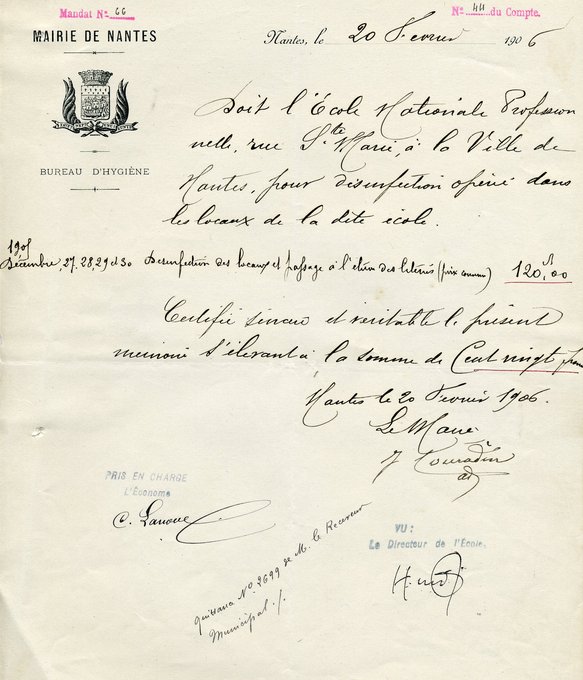 Mandat N° 66
N° 44 du Compte.
MAIRIE DE NANTES
Nantes, le 20 Fevrier 1906
BUREAU D'HYGIÈNE
Doit l'École Nationale Profession
nelle, rue Ste Marie, à la Ville de
Nantes, pour désinfection opérée dans
les locaux de la dite école.
1905
Décembre, 27, 28, 29 et 30 Désinfection des locaux et passage à l'étuve des literies (prix convenu) 120f,00
Certifié sincère et véritable le présent
mémoire s'élevant à la somme de Cent vingt francs
Nantes le 20 Février 1906.
Le Maire
PRIS EN CHARGE
L'Économe
C. Lanoue
VU:
Le Directeur de l'École,
Quittance N° 2699 de M. le Receveur
Municipal ./.